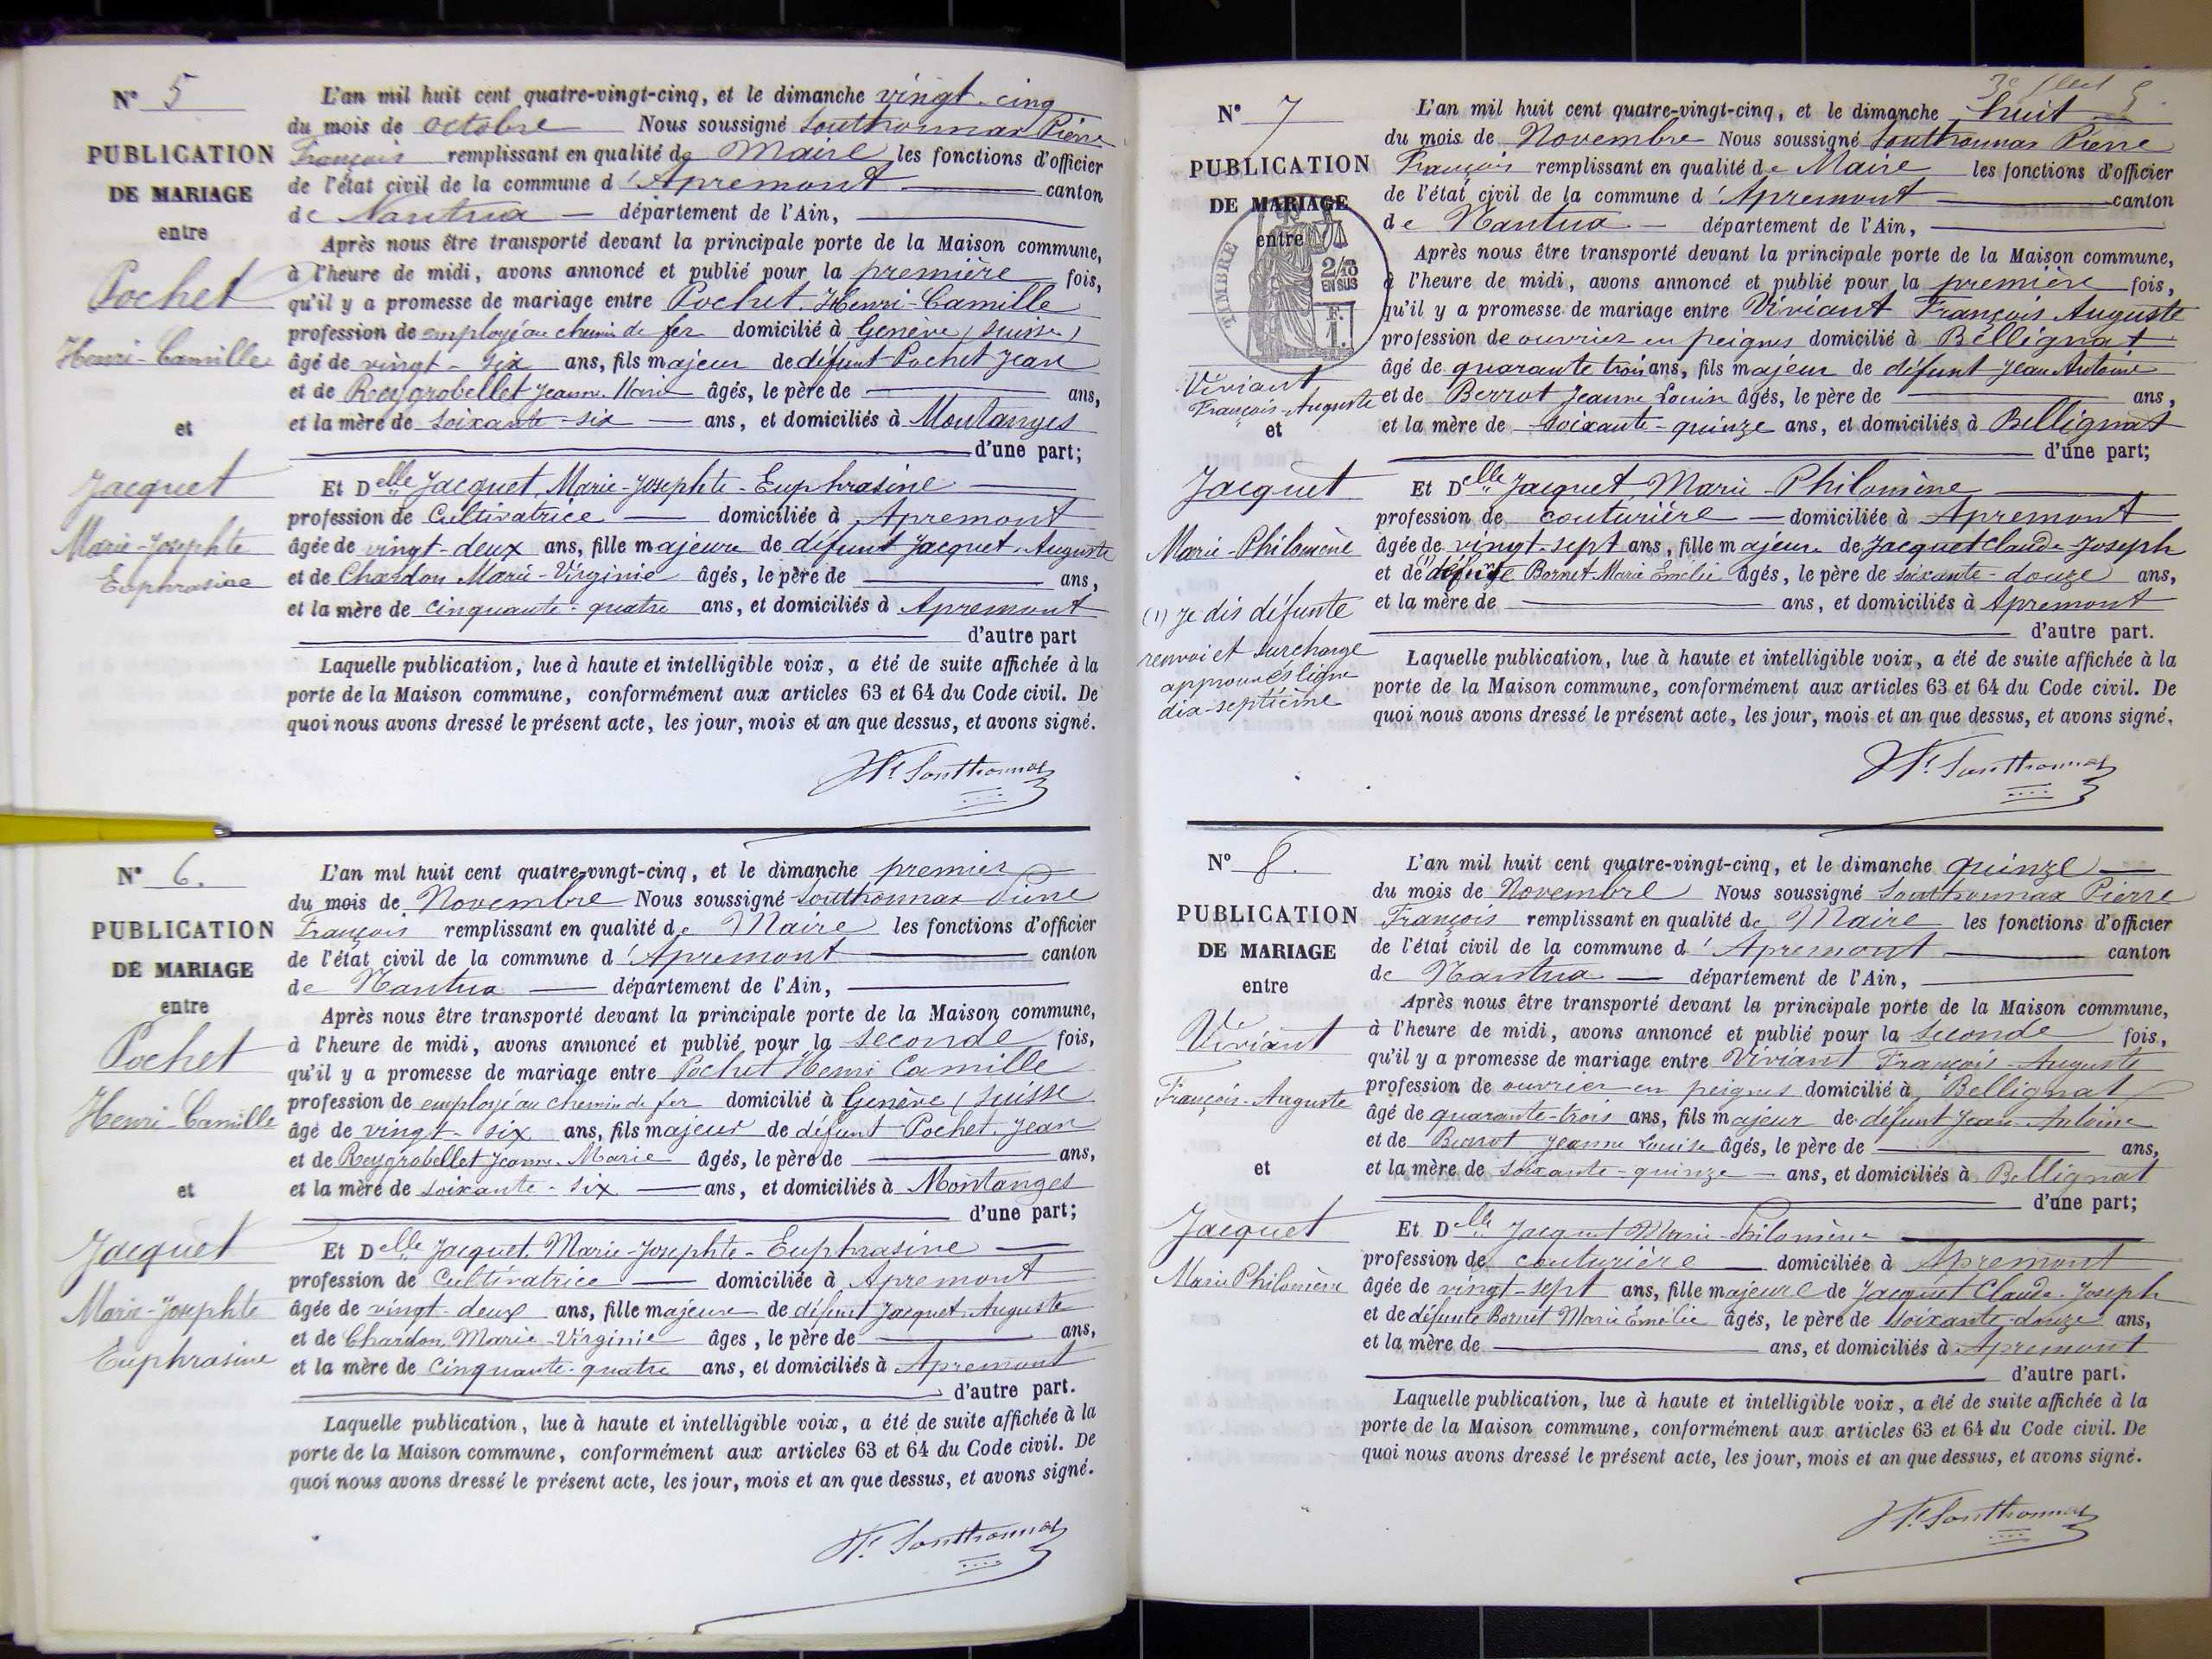 N° 5
PUBLICATION
DE MARIAGE
entre
Pochet
Henri-Camille
et
Jacquet
Marie-Josephte
Euphrasine
L'an mil huit cent quatre-vingt-cinq, et le dimanche vingt-cinq
du mois de octobre Nous soussigné Southonnax Pierre
François remplissant en qualité de Maire les fonctions d'officier
de l'état civil de la commune d'Apremont canton
de Nantua département de l'Ain,
Après nous être transporté devant la principale porte de la Maison commune,
à l'heure de midi, avons annoncé et publié pour la première fois,
qu'il y a promesse de mariage entre Pochet Henri-Camille
profession de employé au chemin de fer domicilié à Genève (suisse)
âgé de vingt-six ans, fils majeur de défunt Pochet Jean
et de Reygrobellet Jeanne Marie âgés, le père de ans,
et la mère de soixante-six ans, et domiciliés à Montanges
d'une part;
Et Delle Jacquet, Marie-Josephte-Euphrasine
profession de Cultivatrice domiciliée à Apremont
âgée de vingt-deux ans, fille majeure de défunt Jacquet Auguste
et de Chardon Marie-Virginie âgés, le père de ans,
et la mère de cinquante-quatre ans, et domiciliés à Apremont
d'autre part
Laquelle publication, lue à haute et intelligible voix, a été de suite affichée à la
porte de la Maison commune, conformément aux articles 63 et 64 du Code civil. De
quoi nous avons dressé le présent acte, les jour, mois et an que dessus, et avons signé.
Southonnax
N° 6.
PUBLICATION
DE MARIAGE
entre
Pochet
Henri-Camille
et
Jacquet
Marie-Josephte
Euphrasine
L'an mil huit cent quatre-vingt-cinq, et le dimanche premier
du mois de Novembre Nous soussigné Southonnax Pierre
François remplissant en qualité de Maire les fonctions d'officier
de l'état civil de la commune d'Apremont canton
de Nantua département de l'Ain,
Après nous être transporté devant la principale porte de la Maison commune,
à l'heure de midi, avons annoncé et publié pour la seconde fois,
qu'il y a promesse de mariage entre Pochet Henri Camille
profession de employé au chemin de fer domicilié à Genève (suisse
âgé de vingt-six ans, fils majeur de défunt Pochet Jean
et de Reygrobellet Jeanne-Marie âgés, le père de ans,
et la mère de soixante-six ans, et domiciliés à Montanges
d'une part;
Et Delle Jacquet Marie-Josephte-Euphrasine
profession de Cultivatrice domiciliée à Apremont
âgée de vingt-deux ans, fille majeure de défunt Jacquet Auguste
et de Chardon, Marie-Virginie âges, le père de ans,
et la mère de Cinquante-quatre ans, et domiciliés à Apremont
d'autre part.
Laquelle publication, lue à haute et intelligible voix, a été de suite affichée à la
porte de la Maison commune, conformément aux articles 63 et 64 du Code civil. De
quoi nous avons dressé le présent acte, les jour, mois et an que dessus, et avons signé.
Southonnax
N° 7
PUBLICATION
DE MARIAGE
entre
TIMBRE
2/10
EN SUS
F.
1.
Viviant
François-Auguste
et
Jacquet
Marie-Philomène
(1) Je dis défunte
renvoi et surcharge
approuvés ligne
dix-septième
L'an mil huit cent quatre-vingt-cinq, et le dimanche huit
du mois de Novembre Nous soussigné Southonnax Pierre
François remplissant en qualité de Maire les fonctions d'officier
de l'état civil de la commune d'Apremont canton
de Nantua département de l'Ain,
Après nous être transporté devant la principale porte de la Maison commune,
à l'heure de midi, avons annoncé et publié pour la première fois,
qu'il y a promesse de mariage entre Viviant François Auguste
profession de ouvrier en peignes domicilié à Bellignat
âgé de quarante trois ans, fils majeur de défunt Jean Antoine
et de Berrot Jeanne Louise âgés, le père de ans,
et la mère de soixante-quinze ans, et domiciliés à Bellignat
d'une part;
Et Delle Jacquet Marie-Philomène
profession de couturière domiciliée à Apremont
âgée de vingt-sept ans, fille majeure de Jacquet Claude Joseph
et de défunte Bornet Marie Emélie âgés, le père de soixante-douze ans,
et la mère de ans, et domiciliés à Apremont
d'autre part.
Laquelle publication, lue à haute et intelligible voix, a été de suite affichée à la
porte de la Maison commune, conformément aux articles 63 et 64 du Code civil. De
quoi nous avons dressé le présent acte, les jour, mois et an que dessus, et avons signé.
Southonnax
N° 8.
PUBLICATION
DE MARIAGE
entre
Viviant
François-Auguste
et
Jacquet
Marie Philomène
L'an mil huit cent quatre-vingt-cinq, et le dimanche quinze
du mois de Novembre Nous soussigné Southonnax Pierre
François remplissant en qualité de Maire les fonctions d'officier
de l'état civil de la commune d'Apremont canton
de Nantua département de l'Ain,
Après nous être transporté devant la principale porte de la Maison commune,
à l'heure de midi, avons annoncé et publié pour la seconde fois,
qu'il y a promesse de mariage entre Viviant François-Auguste
profession de ouvrier en peignes domicilié à Bellignat
âgé de quarante-trois ans, fils majeur de défunt Jean-Antoine
et de Berrot Jeanne Louise âgés, le père de ans,
et la mère de soixante-quinze ans, et domiciliés à Bellignat
d'une part;
Et Delle Jacquet Marie-Philomène
profession de couturière domiciliée à Apremont
âgée de vingt-sept ans, fille majeure de Jacquet Claude-Joseph
et de défunte Bornet Marie Emélie âgés, le père de soixante-douze ans,
et la mère de ans, et domiciliés à Apremont
d'autre part.
Laquelle publication, lue à haute et intelligible voix, a été de suite affichée à la
porte de la Maison commune, conformément aux articles 63 et 64 du Code civil. De
quoi nous avons dressé le présent acte, les jour, mois et an que dessus, et avons signé.
Southonnax